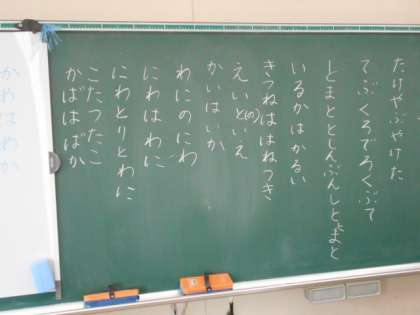 たけやぶやけた
てぶくろでろくぶて
とまととしんぶんしととまと
いるかはかるい
きつねははねつき
えいと(の)いえ
かいはいか
わにのにわ
にわはわに
にわとりとわに
こたつたこ
かばはばか
かわはわか